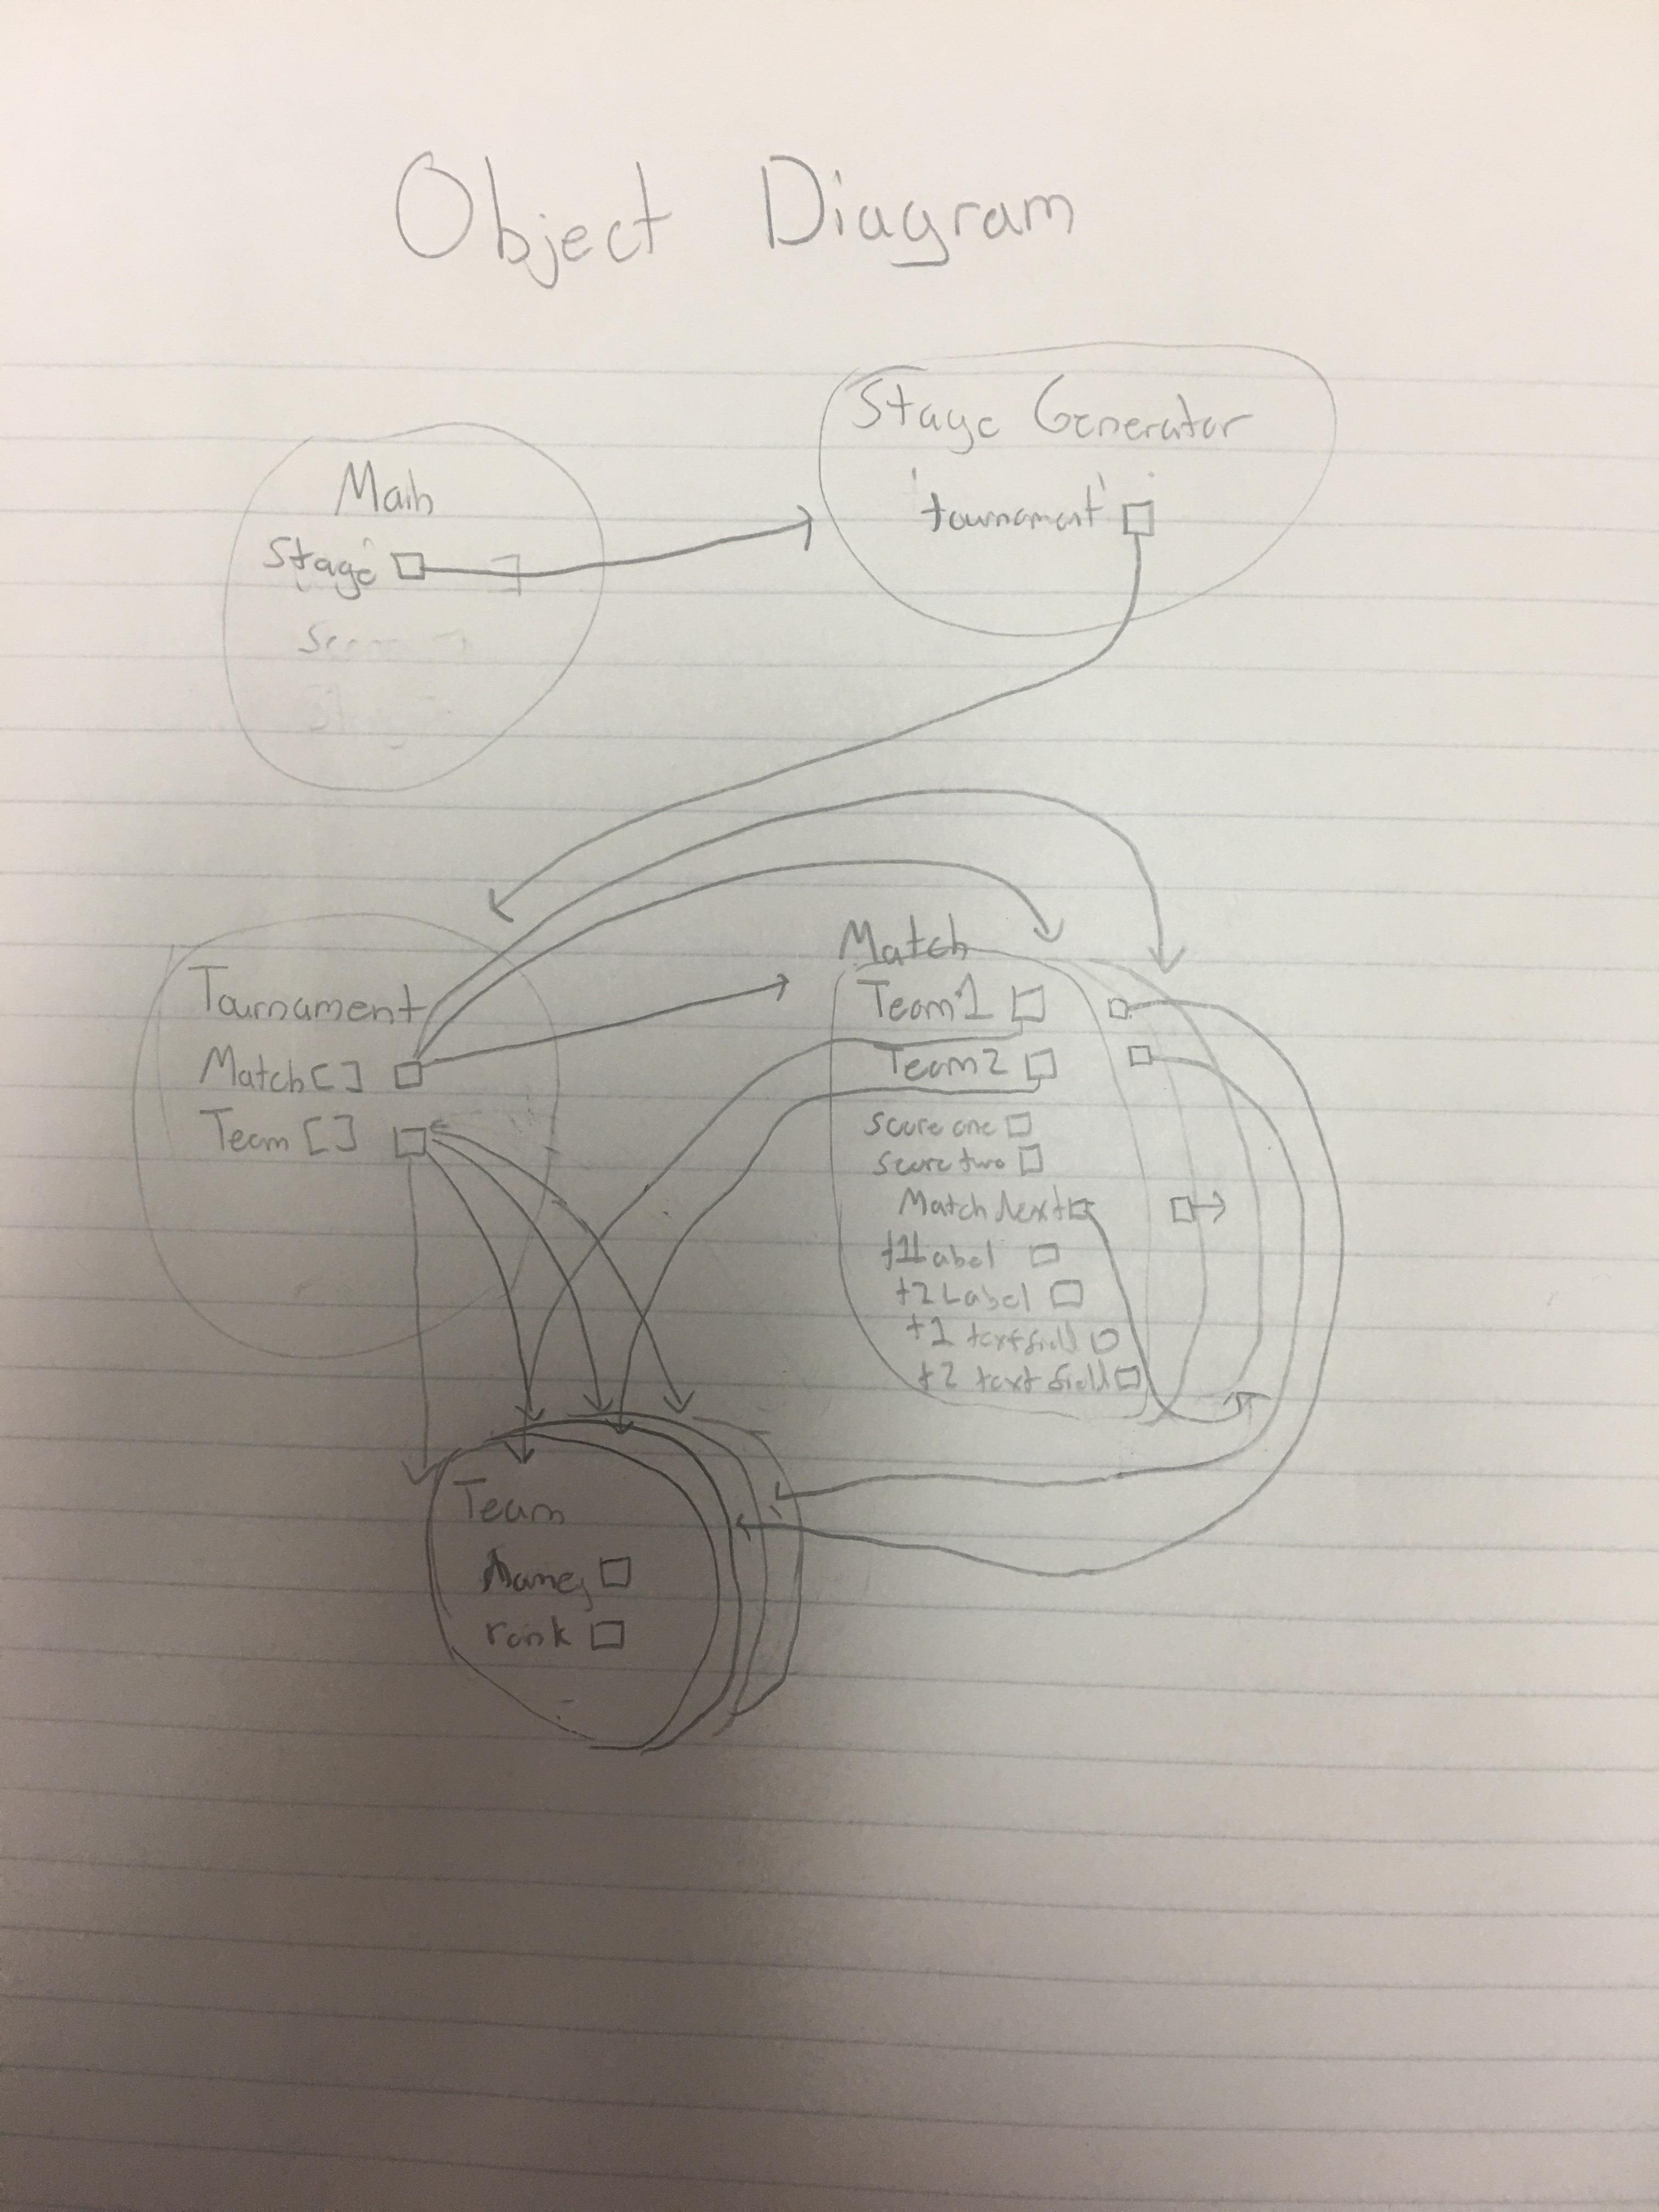 Object Diagram
Main
Stage
Stage Generator
tournament
Tournament
Match []
Team []
Match
Team1
Team2
score one
score two
Match Next
t1 Label
t2 Label
t1 textfield
t2 textfield
Team
Name
rank